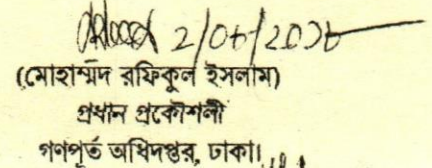 (মোহাম্মদ রফিকুল ইসলাম)
প্রধান প্রকৌশলী
গণপূর্ত অধিদপ্তর, ঢাকা।